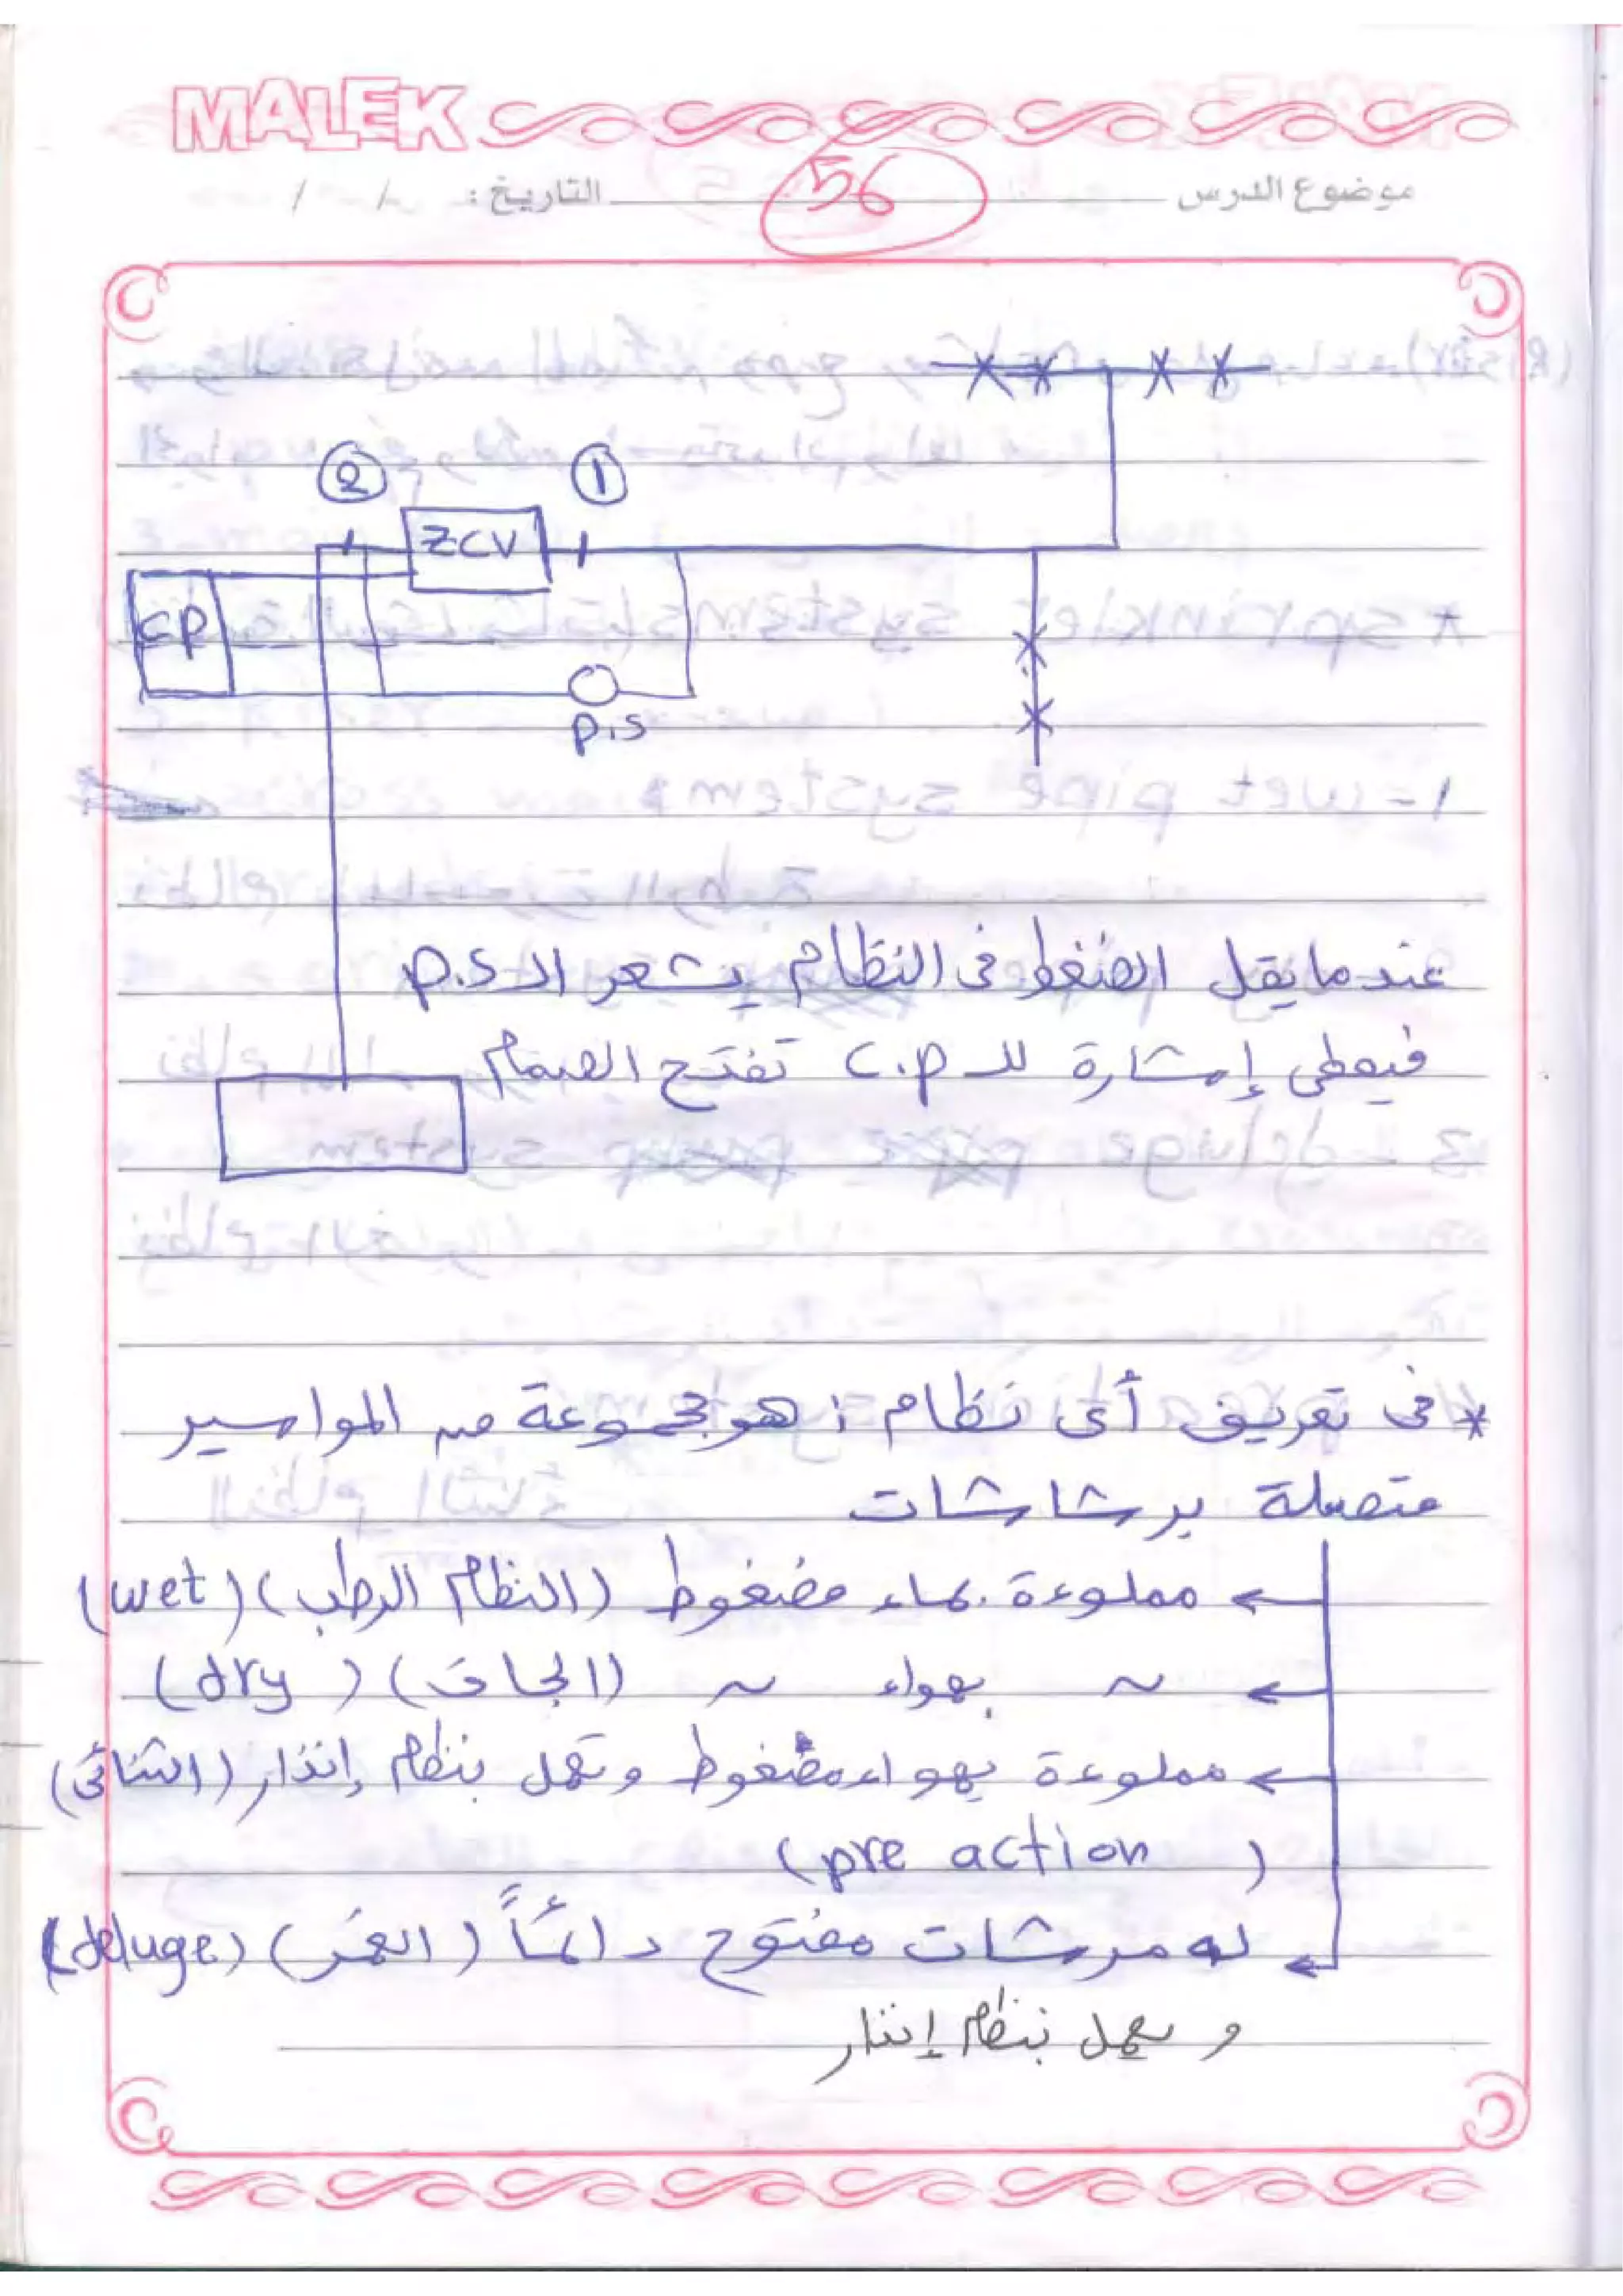 MALEK
موضوع الدرس 56 التاريخ: / /
② ①
ZCV
CP
P.S
عندما يقل الضغط فى النظام يشعر الـ P.S
فيعطى إشارة للـ C.P تفتح الصمام
* فى تعريف أى نظام : هو مجموعة من المواسير
متصلة برشاشات
← مملوءة بماء مضغوط (النظام الرطب) (wet)
← ~ بهواء ~ (الجاف) (dry)
← مملوءة بهواء مضغوط وتعمل بنظام إنذار (الثنائى)
(pre action)
← له مرشات مفتوح دائماً (الغمر) (deluge)
و يعمل بنظام إنذار